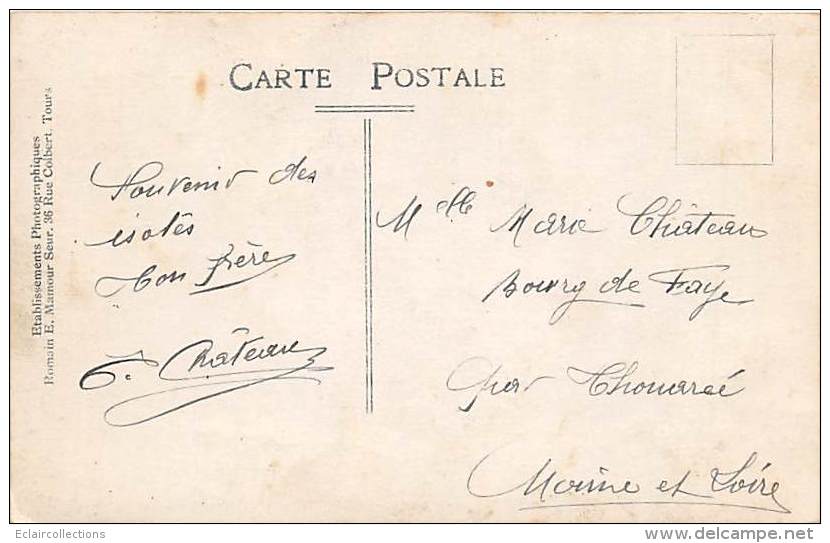 CARTE POSTALE
Etablissements Photographiques
Romain E. Mamour Seur. 36 Rue Colbert. Tours
Souvenir des
isolés
Ton frère
Château
Mlle Marie Château
Bourg de Faye
par Thouarcé
Maine et Loire
Eclaircollections
delcampe.net